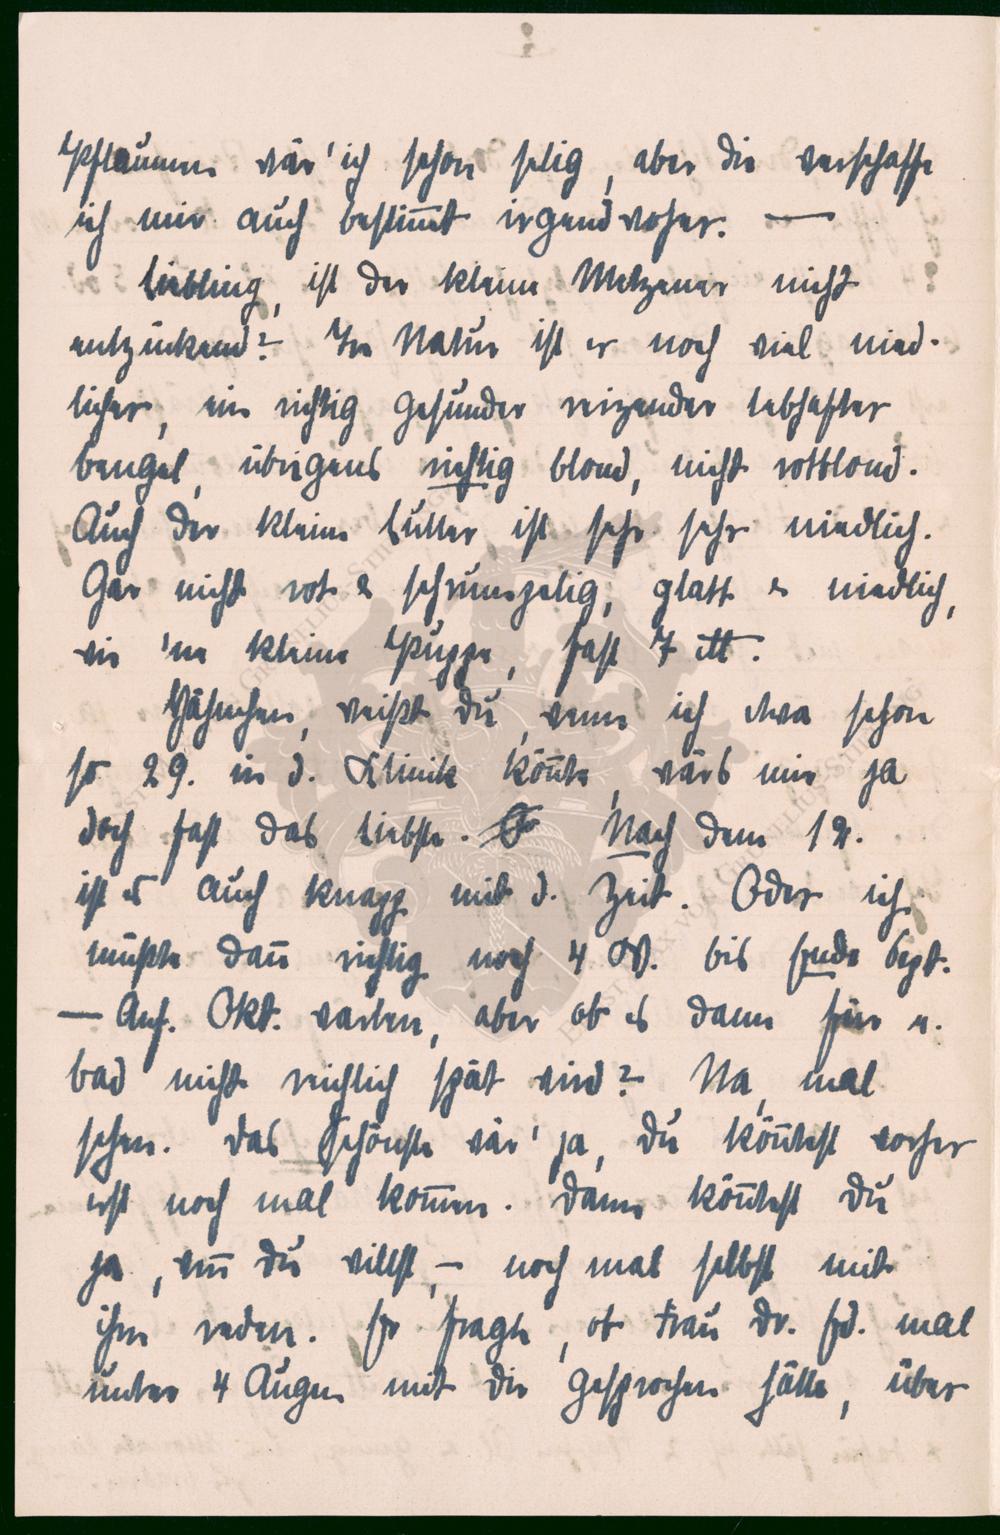 Pflaumen wär' ich schon selig, aber die verschaffe
ich mir auch bestim̄t irgendwoher. —
Liebling, ist der kleine Metzener nicht
entzückend? In Natur ist er noch viel nied-
licher, ein richtig gesunder reizender lebhafter
Bengel, übrigens richtig blond, nicht rotblond.
Auch der kleine Sutter ist sehr sehr niedlich.
Gar nicht rot & schrumpelig, glatt & niedlich,
wie 'ne kleine Puppe, fast 7 ℔.
Hähnchen, weißt Du, wenn ich etwa schon
so 29. in d. Klinik kön̄te, wärs mir ja
doch fast das Liebste. Nach dem 12.
ist es auch knapp mit d. Zeit. Oder ich
müßte dan̄ richtig noch 4 W. bis Ende Sept.
— Anf. Okt. warten, aber ob es dann für u.
Bad nicht reichlich spät wird? Na, mal
sehen. Das Schönste wär' ja, Du kön̄test vorher
erst noch mal kom̄en. Dann kön̄test Du
ja, wen̄ Du willst, – noch mal selbst mit
ihm reden. Er fragte, ob Frau Dr. Ed. mal
unter 4 Augen mit Dir gesprochen hätte, über